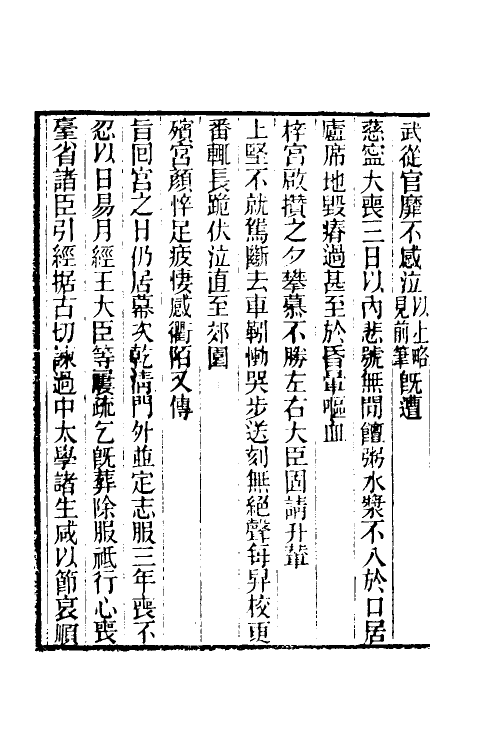 武從官靡不感泣以上略見前筆旣遭
慈寧大喪三日以內悲號無間饘粥水漿不入於口居
廬席地毀瘠過甚至於昏暈嘔血
梓宮啟攢之夕攀慕不勝左右大臣固請升輦
上堅不就駕斷去車靷慟哭步送刻無絕聲每昇校更
番輒長跪伏泣直至郊園
殯宮顏悴足疲悽感衢陌又傳
旨回宮之日仍居幕次乾淸門外並定志服三年喪不
忍以日易月經王大臣等屢疏乞旣葬除服祗行心喪
臺省諸臣引經据古切諫過中太學諸生咸以節哀順